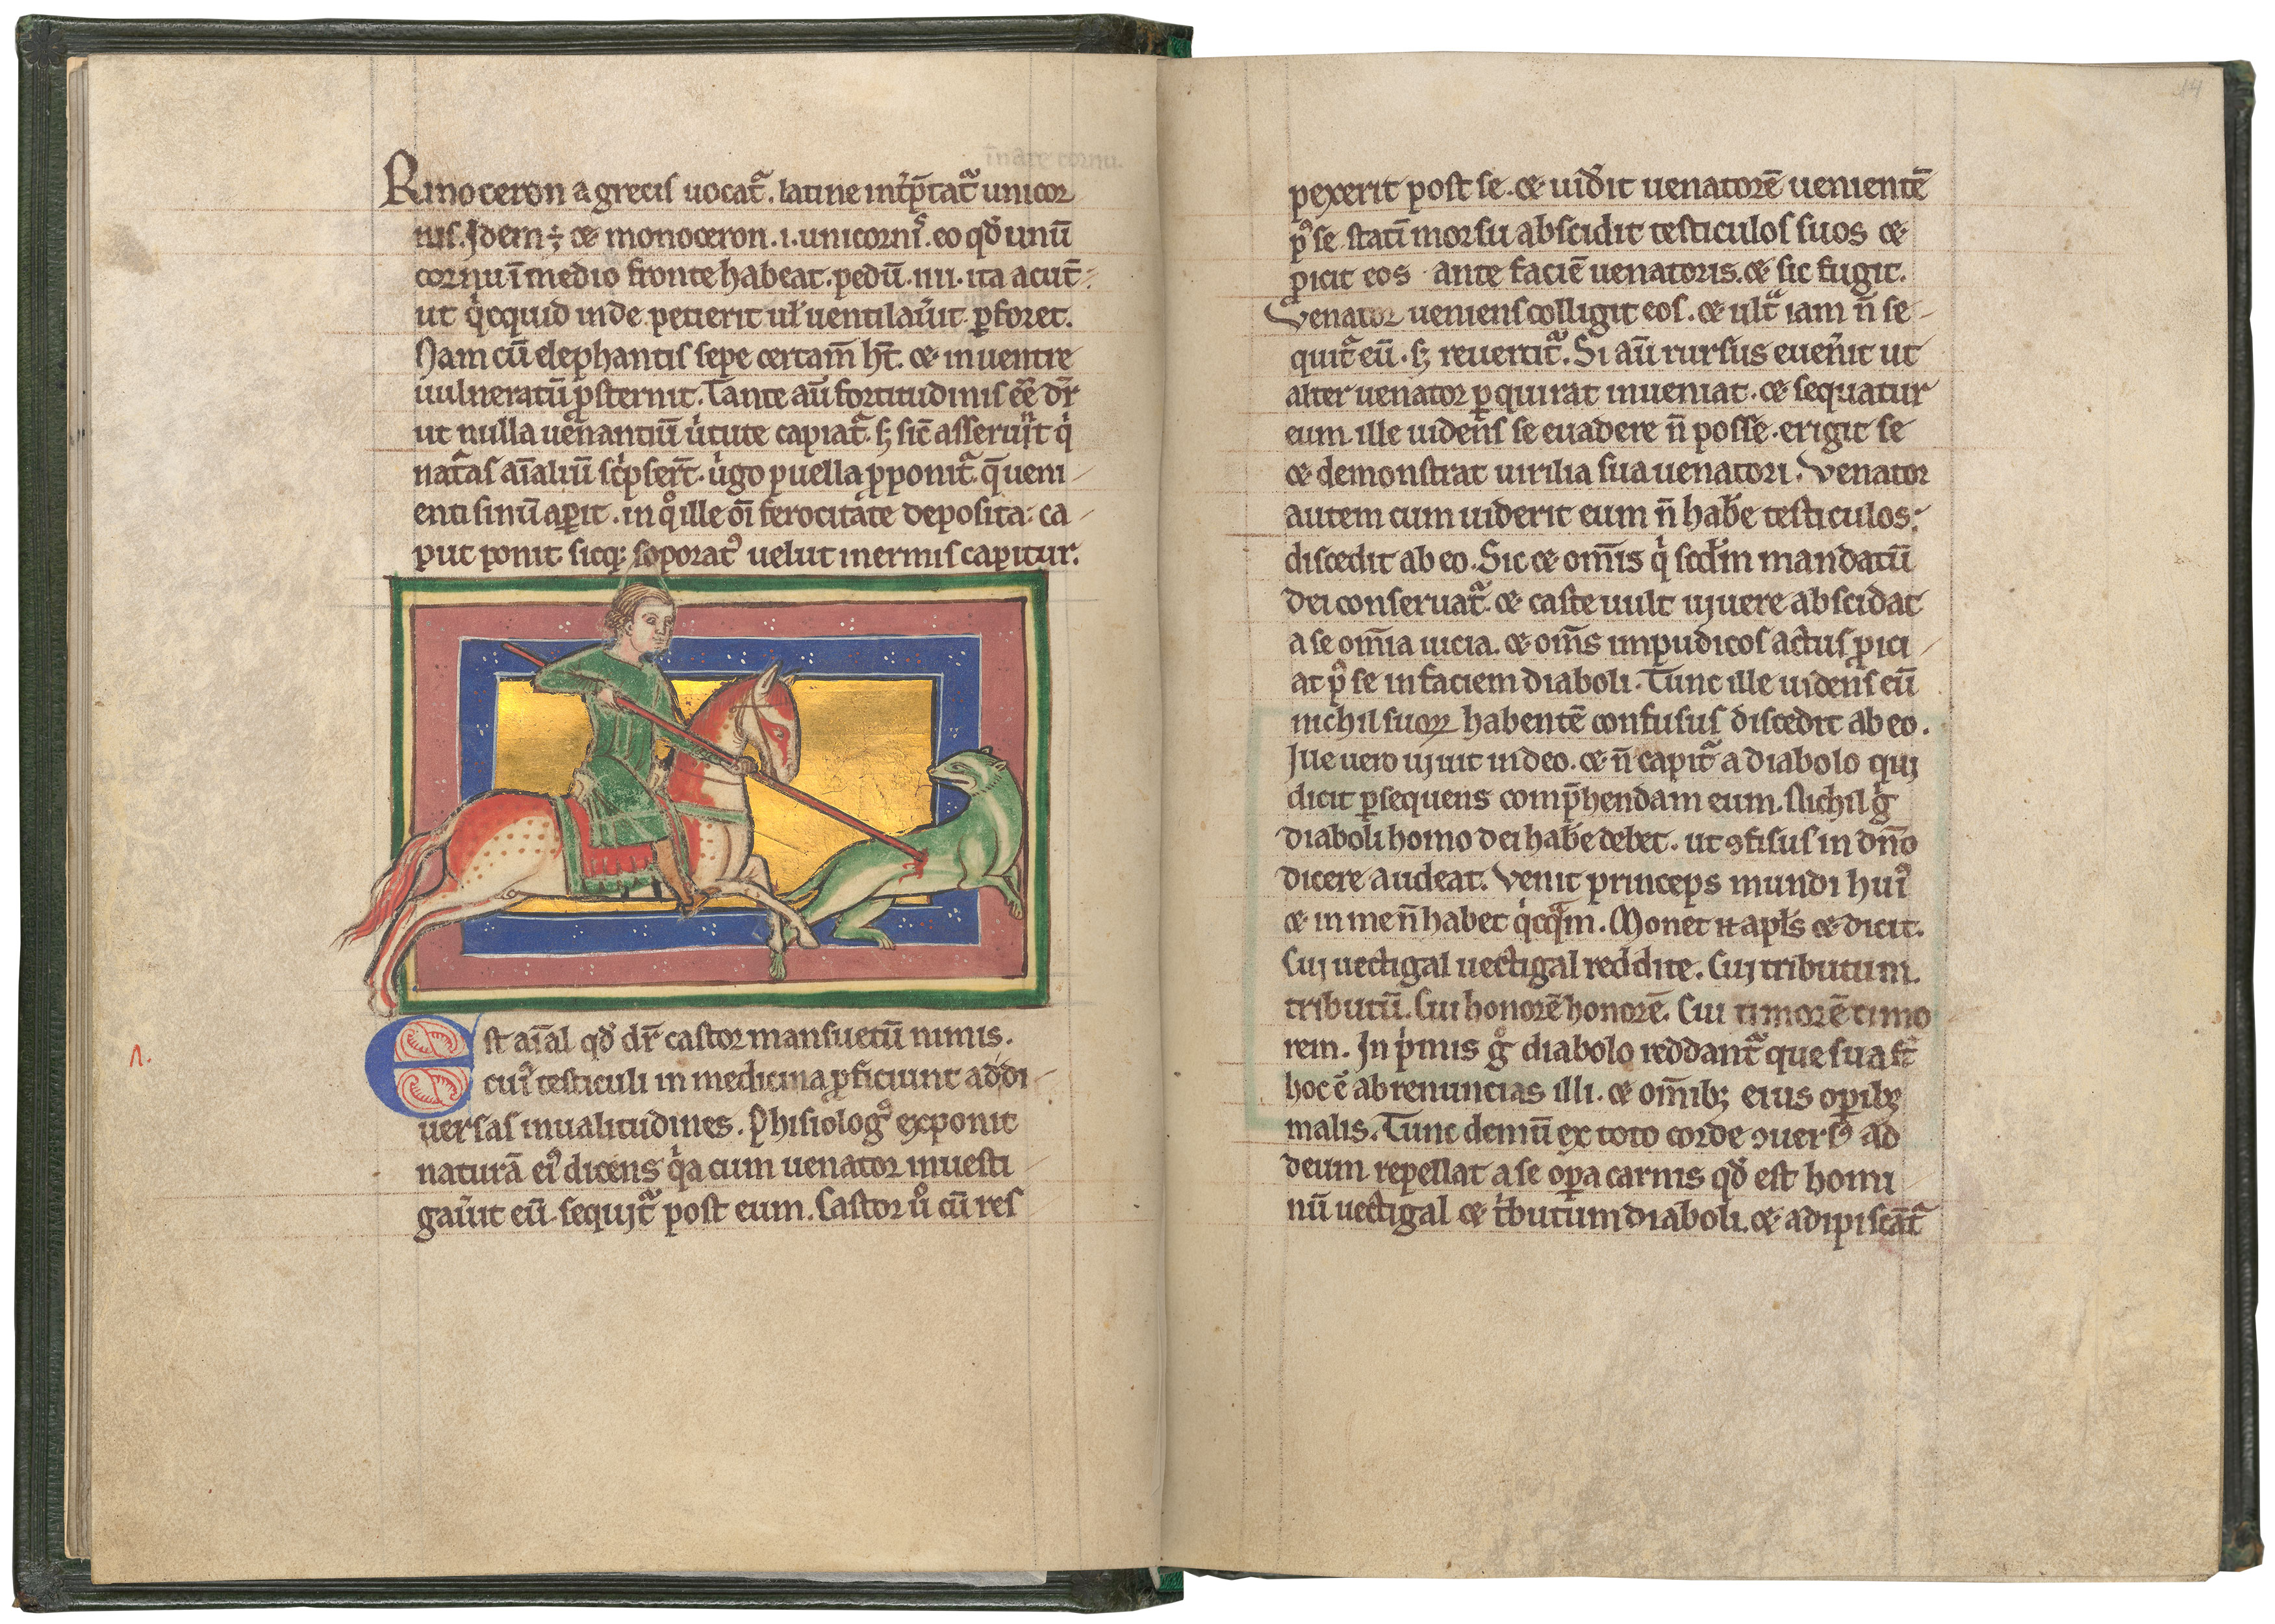 Rinoceron a grecis uocat᷑. latine int̾p̄tat᷑ unicor
nis. Idem ÷ ⁊ monoceron .i. unicornis. eo qđ unū
cornu ī medio fronte habeat. pedū .iiii. ita acut̄
ut qͥcquid inde petierit ul̵ uentilau̾it ꝑforet.
Nam cū elephantis sepe certam̄ ht̄. ⁊ in uentre
uulneratū ꝓsternit. Tante aū fortitudinis eē dr̄
ut nulla uenantiū uͥtute capiat᷑. sꝫ sic̄ asserunt qͥ
nat᷑as aīaliū scͥpser̄t. uͥgo puella ꝓponit᷑. q̄ ueni
enti sinū aꝑit. in qͦ ille oī ferocitate deposita ca
put ponit. sicqꝫ soporatꝰ uelut inermis capitur.
Est aīal qđ dr̄ castor mansuetū nimis.
cuiꝰ testiculi in medicina ꝓficiunt ad di
uersas inualitudines. Phisiologꝰ exponit
naturā eiꝰ dicens qͥa cum uenator inuesti
gau̾it eū. sequit᷑ post eum. Castor uͦ cū res
14
pexerit post se. ⁊ uid̾it uenatorē uenientē
pꝰ se statī morsu abscidit testiculos suos ⁊
ꝓicit eos ante faciē uenatoris. ⁊ sic fugit.
Venator ueniens colligit eos. ⁊ ult᷑ iam n̄ se
quit᷑ eū. sꝫ reuertit᷑. Si aū rursus euen̾it ut
alter uenator ꝑquirat inueniat. ⁊ sequatur
eum. ille uidens se euadere n̄ posse. erigit se
⁊ demonstrat uirilia sua uenatori. Venator
autem cum uiderit eum n̄ hab̾e testiculos.
discedit ab eo. Sic ⁊ om̄is qͥ scd̵m mandatū
dei conseruat᷑. ⁊ caste uult uiuere abscidat
a se om̄ia uicia. ⁊ om̄s impudicos actus ꝓici
at pꝰ se in faciem diaboli. Tunc ille uidens eū
nichil suoꝝ habentē confusus discedit ab eo.
Ille uero uiuit in deo. ⁊ n̄ capit᷑ a diabolo qui
dicit ꝑsequens comp̄hendam eum. Nichil gͥ
diaboli homo dei hab̾e debet. ut ꝯfisus in dn̄o
dicere audeat. Venit princeps mundi huiꝰ
⁊ in me n̄ habet qͥcqͣm. Monet apl̵s ⁊ dicit.
Cui uectigal uectigal reddite. Cui tributum.
tributū. Cui honorē honorē. Cui timorē timo
rem. In pͥmis gͦ diabolo reddant᷑ que sua st̄
hoc ē abrenuncias illi. ⁊ om̄ibꝫ eius oꝑibꝫ
malis. Tunc demū ex toto corde ꝯuersꝰ ad
deum repellat a se oꝑa carnis qđ est homi
nū uectigal ⁊ tͥbutum diaboli. ⁊ adipiscāt᷑